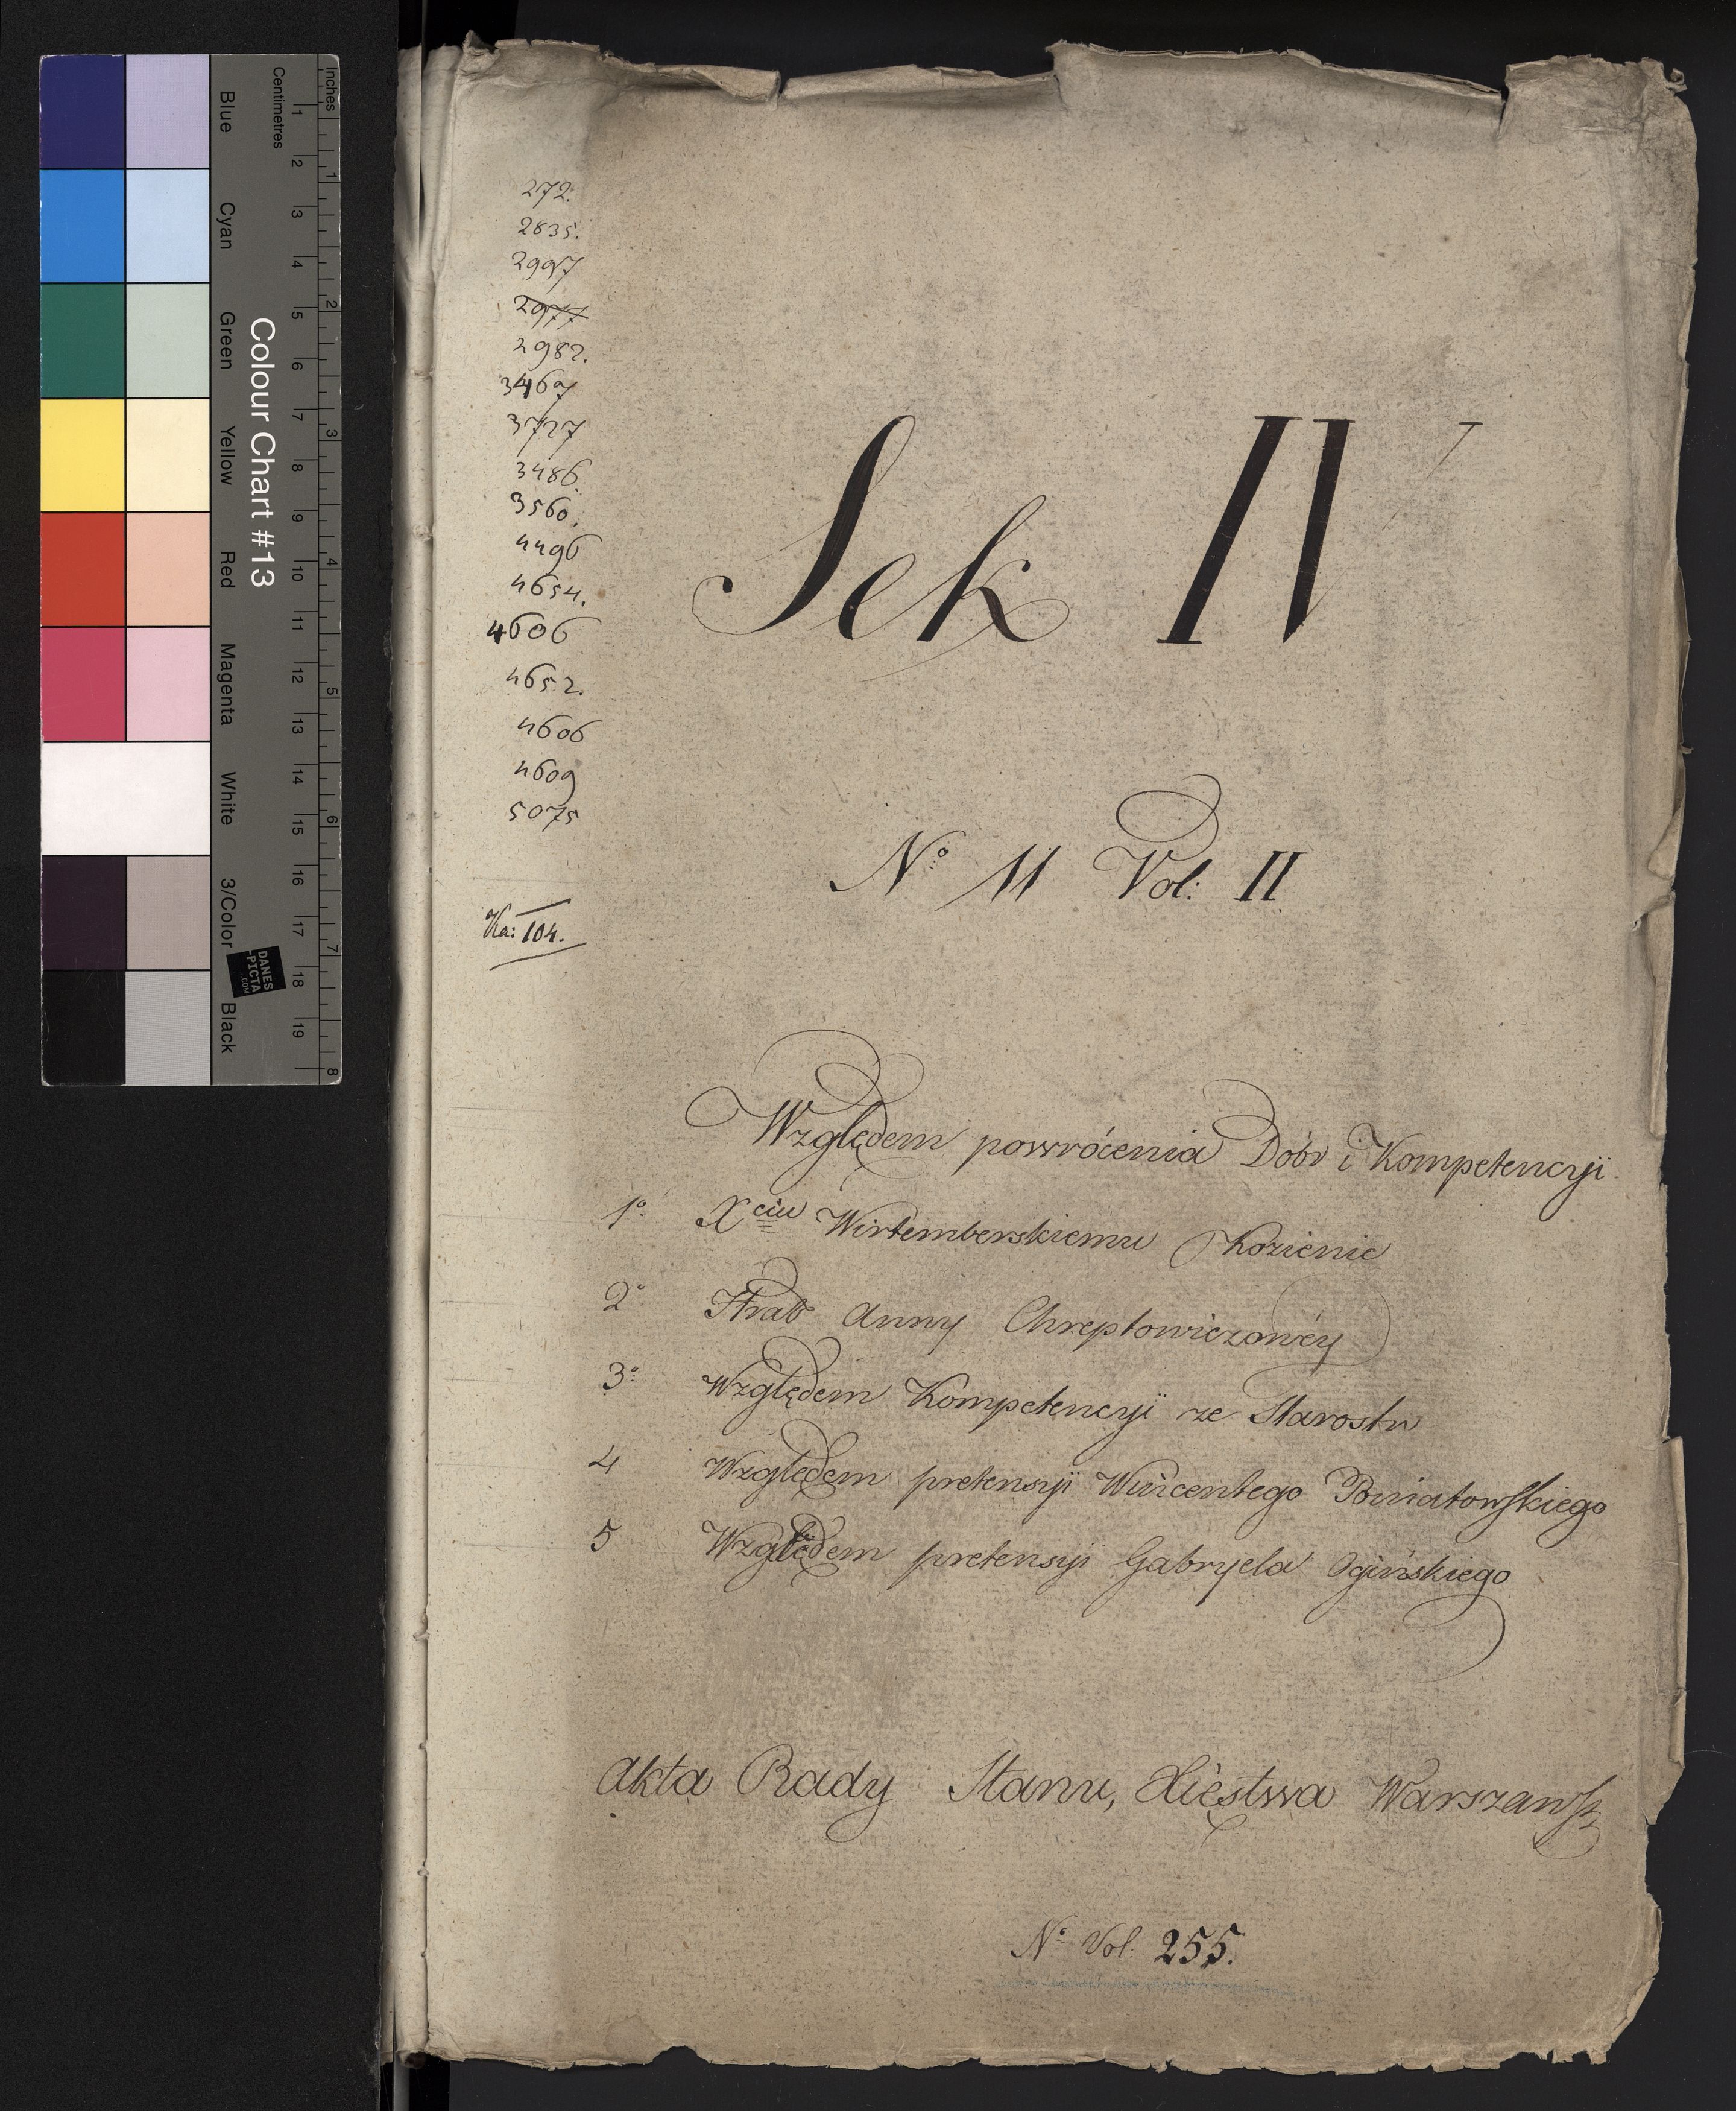 Inches
Centimetres
1 2 3 4 5 6 7 8 9 10 11 12 13 14 15 16 17 18 19
1 2 3 4 5 6 7 8
Colour Chart #13
Blue Cyan Green Yellow Red Magenta White 3/Color Black
DANES
-PICTA
.COM
272.
2835.
2997
2977
2982.
3469
3727
3486.
3560.
4496
4654.
4606
4652.
4606
4609
5075
Ka: 104.
Sek IV
No 11 Vol: II
Względem powrócenia Dóbr i Kompetencyi
1o Xciu Wirtemberskiemu Kozienic
2o Hrab Anny Chreptowiczowéy
3o Względem Kompetencyi ze Starostw
4 Względem pretensyi Wincentego Poniatowskiego
5 Względem pretensyi Gabryela Ogińskiego
Akta Rady Stanu, Xięstwa Warszawsk
No Vol. 255.